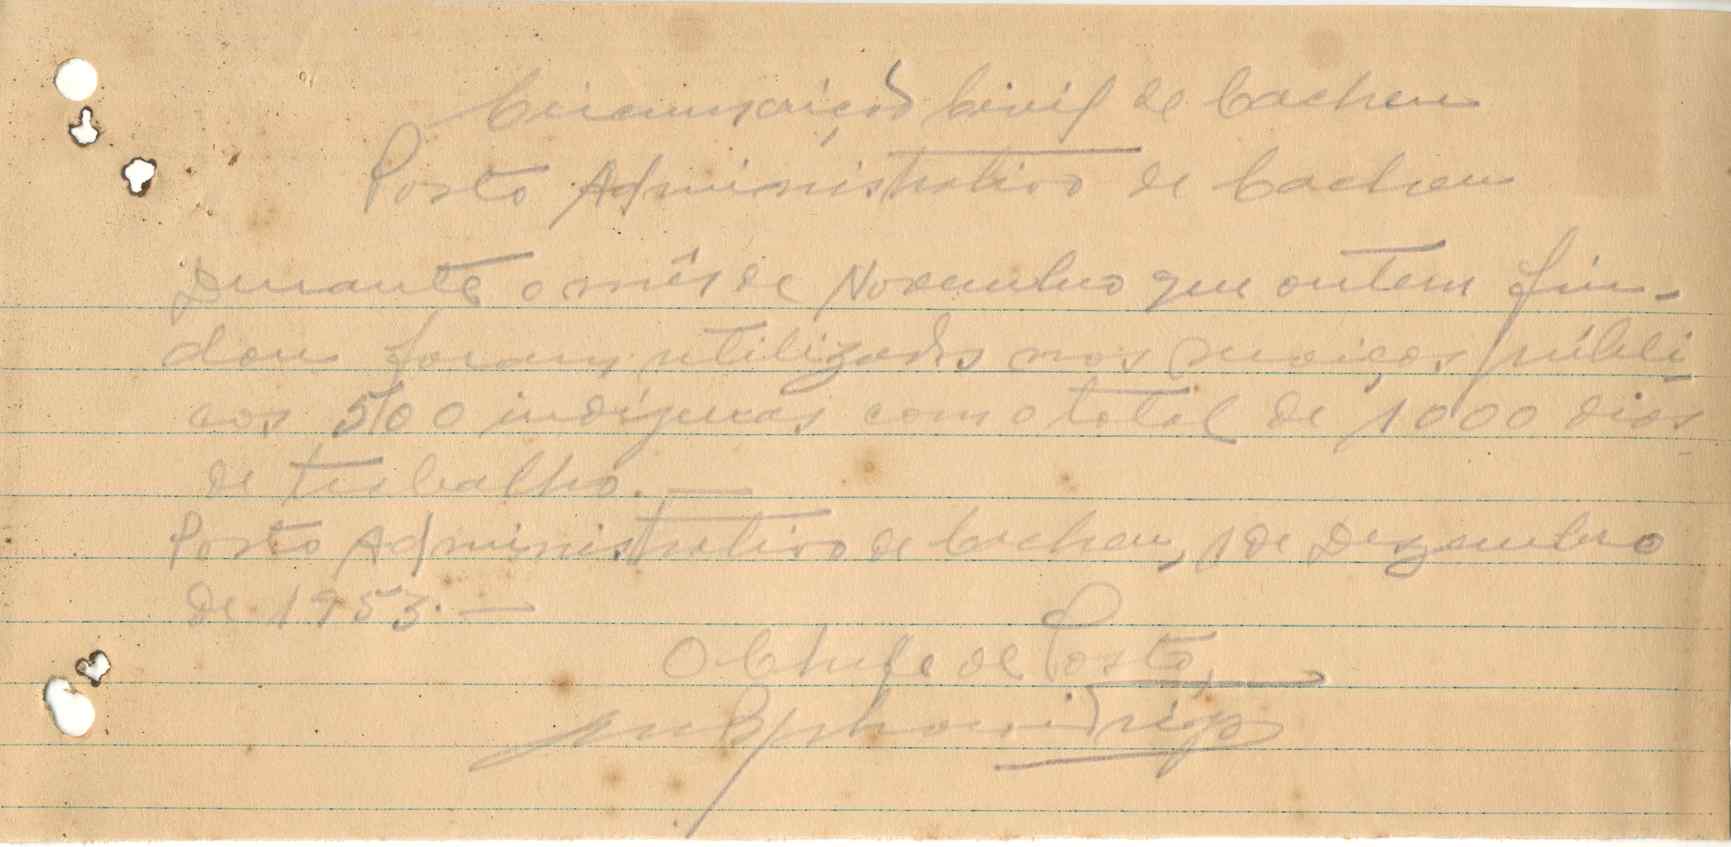 Circunscrição Civil de Cacheu
Posto Administrativo de Cacheu
Durante o mês de Novembro que ontem fin-
dou foram utilizados nos serviços públi
cos 500 indígenas com o total de 1000 dias
de trabalho. —
Posto Administrativo de Cacheu, 1 de Dezembro
de 1953. —
O Chefe de Posto,